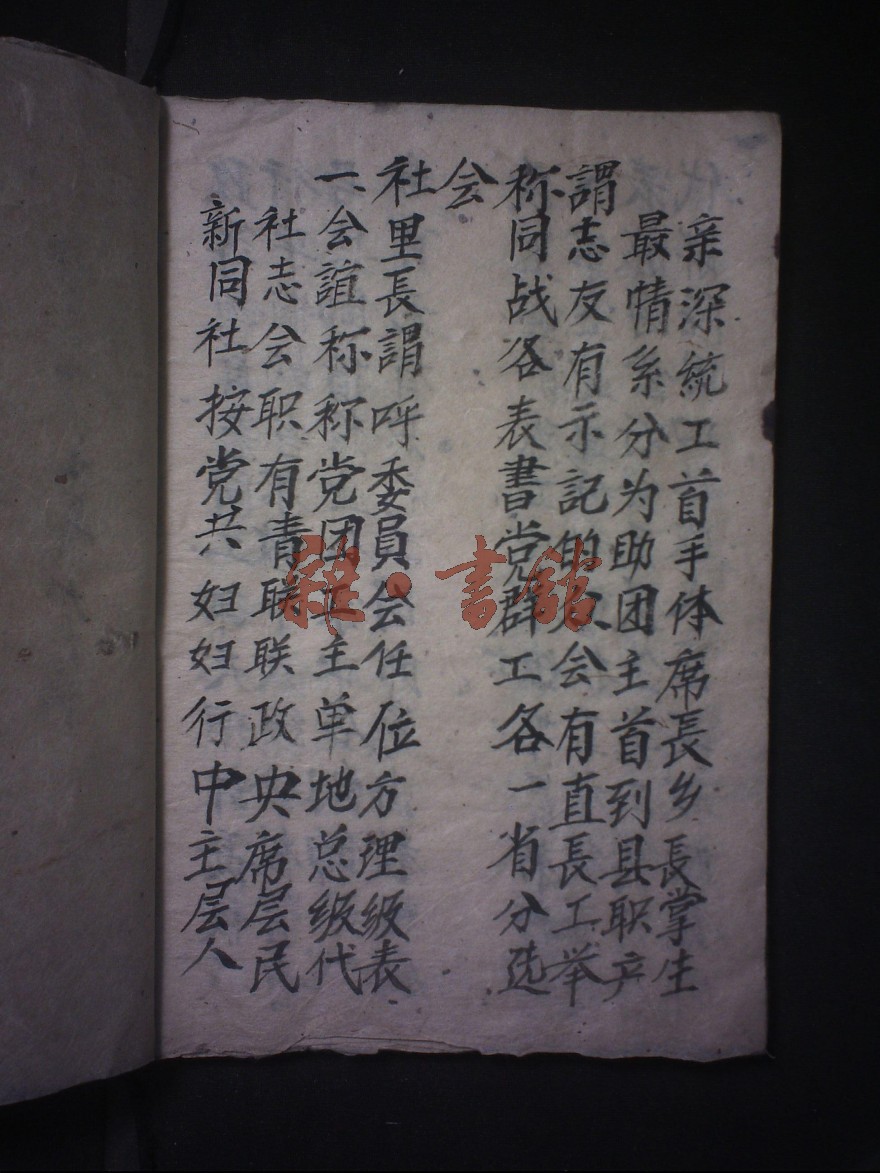 亲深統工首手体席長乡長掌生
最情系分为助团主首到县职产
謂志友有示記的众会有直長工举
称同战各表書党群工各一省分选
会
社里長謂呼委員会任位方理级表
一会誼称称党团工主单地总级代
社志会职有青联联政央席层民
新同社按党共妇妇行中主层人
雜·書館